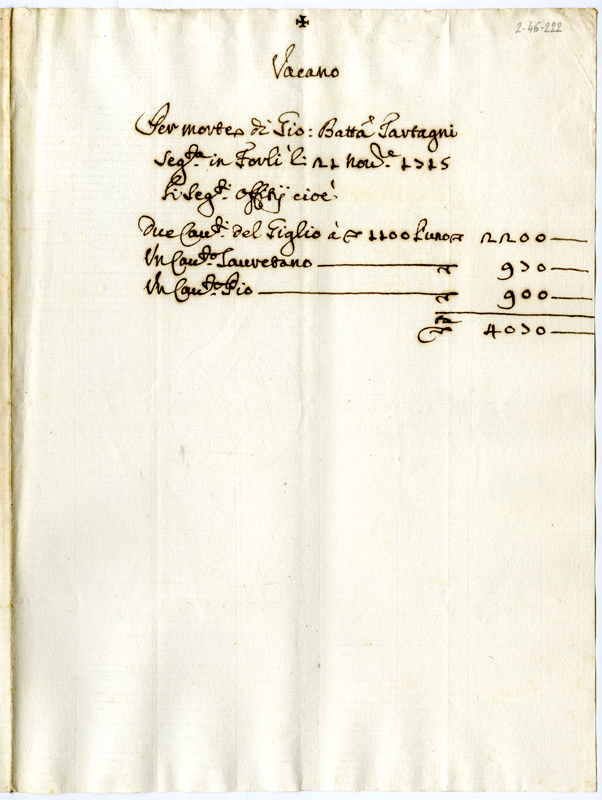 ✠
2-46-222
Vacano
Per morte di Gio: Batta Tartagni
Segta in Forlì li 21 Nov.e 1715
li Seg.ti Offitij cioè
Due Cau.ti del Giglio à 1100 l'uno 2200
Un Cau.to Lauretano 970
Un Cau.to Pio 900
4070